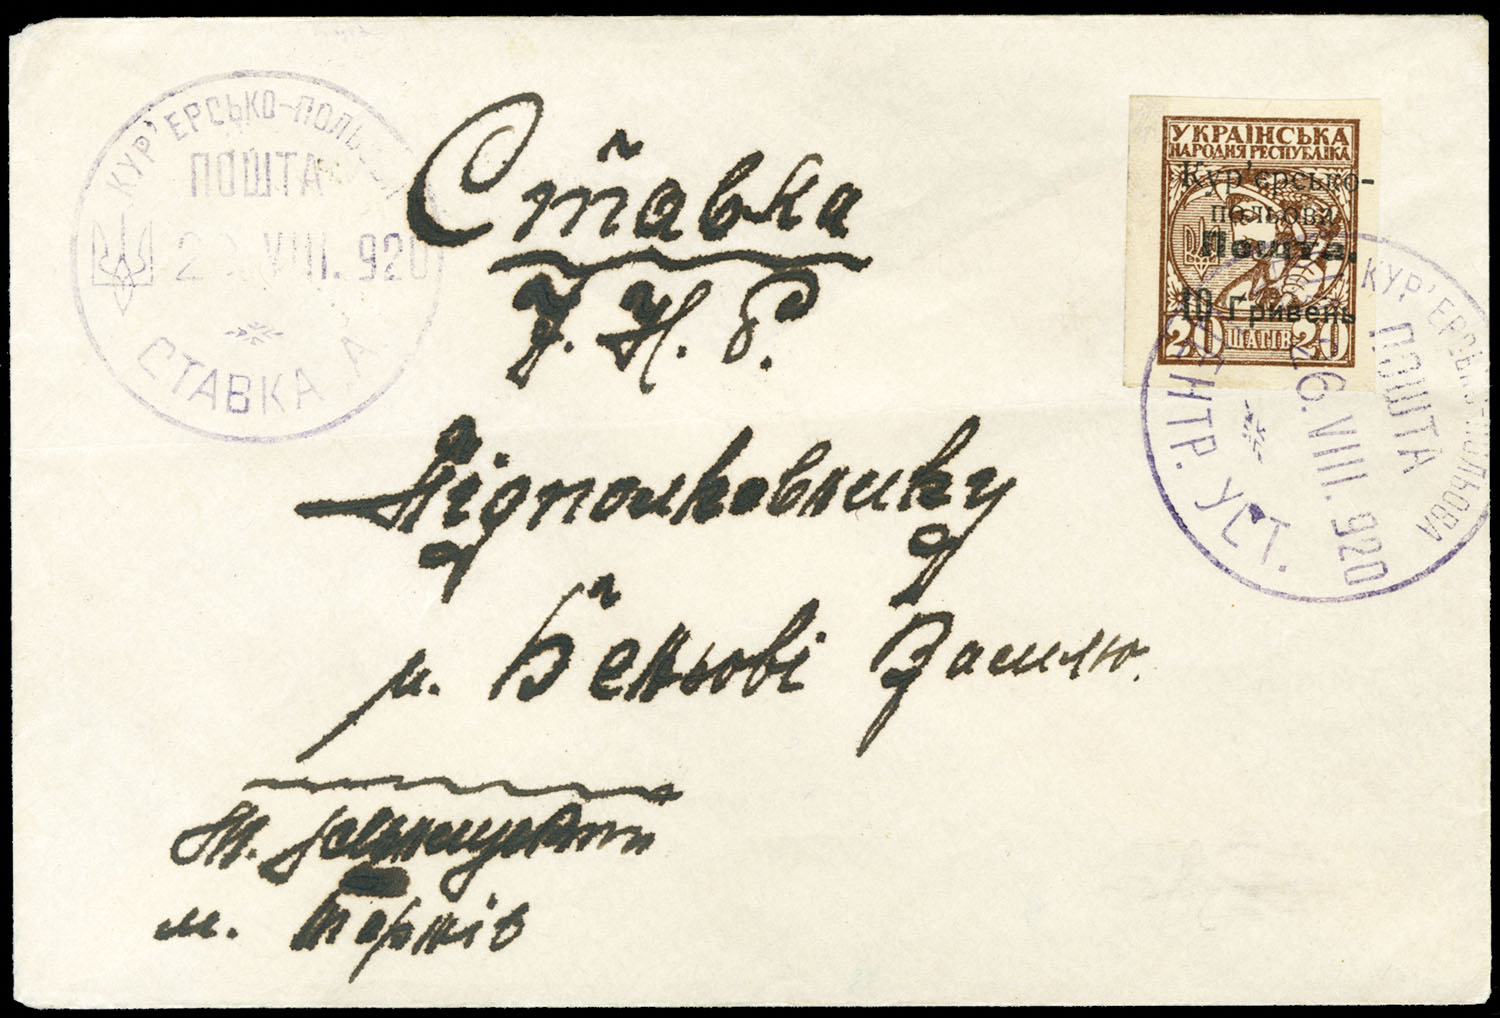 КУР'ЕРСЬКО-ПОЛЬОВА
ПОШТА
VIII. 920
СТАВКА А.
УКРАЇНСЬКА
НАРОДНЯ РЕСПУБЛІКА
Кур'єрсько-
польова
Пошта.
10 Гривень
20 ШАГІВ 20
КУР'ЕРСЬКО-ПОЛЬОВА
ПОШТА
26. VIII. 920
ЦЕНТР. УСТ.
Ставка
У. Н. Р.
Підполковнику
Василю
м. Тарнів